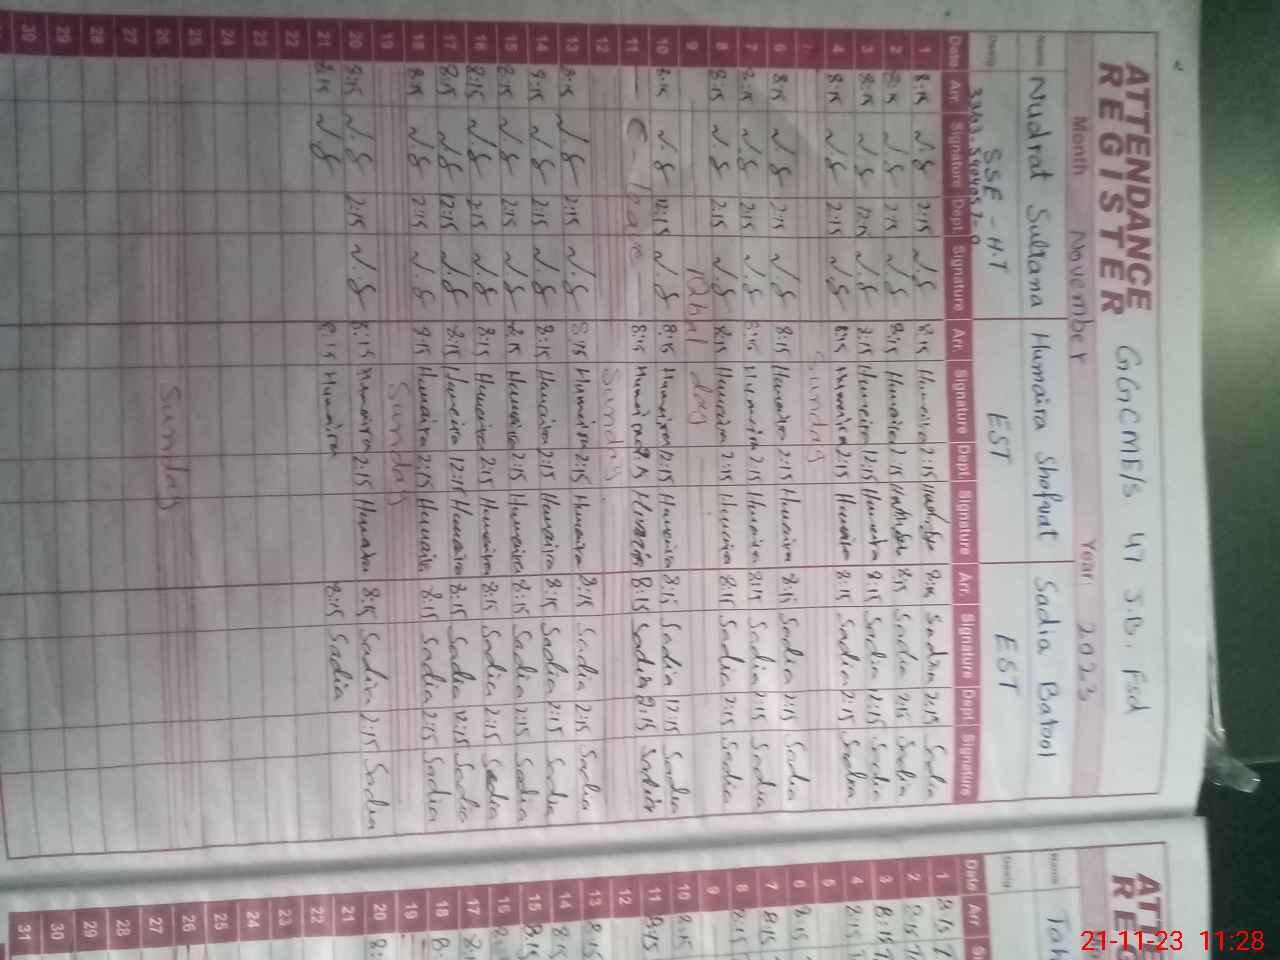 ATTENDANCE REGISTER
GGCME/S 47 J.B. Fsd
Month November Year: 2023
Name Nudrat Sultana Humaira Shafaat Sadia Batool
Desig SSE - H.T EST EST
Date Arr. Signature Dept. Signature Arr. Signature Dept. Signature Arr. Signature Dept. Signature
1 8:15 N.S 2:15 N.S 8:15 Humaira 2:15 8:15 Sadia 2:15 Sadia
2 8:15 N.S 2:15 N.S 8:15 Humaira 2:15 8:15 Sadia 2:15 Sadia
3 8:15 N.S 12:15 N.S 8:15 Humaira 12:15 Humaira 8:15 Sadia 12:15 Sadia
4 8:15 N.S 2:15 N.S 8:15 Humaira 2:15 Humaira 8:15 Sadia 2:15 Sadia
Sunday
6 8:15 N.S 2:15 N.S 8:15 Humaira 2:15 Humaira 8:15 Sadia 2:15 Sadia
7 8:15 N.S 2:15 N.S 8:15 Humaira 2:15 Humaira 8:15 Sadia 2:15 Sadia
8 8:15 N.S 2:15 N.S 8:15 Humaira 2:15 Humaira 8:15 Sadia 2:15 Sadia
9 Iqbal day
10 8:15 N.S 12:15 N.S 8:15 Humaira 12:15 Humaira 8:15 Sadia 12:15 Sadia
11 C - leave 8:15 Humaira 2:15 8:15 Sadia 2:15 Sadia
12 Sunday
13 8:15 N.S 2:15 N.S 8:15 Humaira 2:15 Humaira 8:15 Sadia 2:15 Sadia
14 8:15 N.S 2:15 N.S 8:15 Humaira 2:15 Humaira 8:15 Sadia 2:15 Sadia
15 8:15 N.S 2:15 N.S 8:15 Humaira 2:15 Humaira 8:15 Sadia 2:15 Sadia
16 8:15 N.S 2:15 N.S 8:15 Humaira 2:15 Humaira 8:15 Sadia 2:15 Sadia
17 8:15 N.S 12:15 N.S 8:15 Humaira 12:15 Humaira 8:15 Sadia 12:15 Sadia
18 8:15 N.S 2:15 N.S 8:15 Humaira 2:15 Humaira 8:15 Sadia 2:15 Sadia
19 Sunday
20 8:15 N.S 2:15 N.S 8:15 Humaira 2:15 Humaira 8:15 Sadia 2:15 Sadia
21 8:15 N.S 8:15 Humaira 8:15 Sadia
22
23
24
25
26 Sunday
27
28
29
30
Name
Desig
Date Arr.
1 8:15
2 8:15
3 8:15
4 8:15
5
6 8:15
7 8:15
8 8:15
9
10 8:15
11 8:15
12
13 8:15
14 8:15
15 8:15
16
17
18
19
20
21
22
23
24
25
26
27
28
29
30
31
21-11-23 11:28